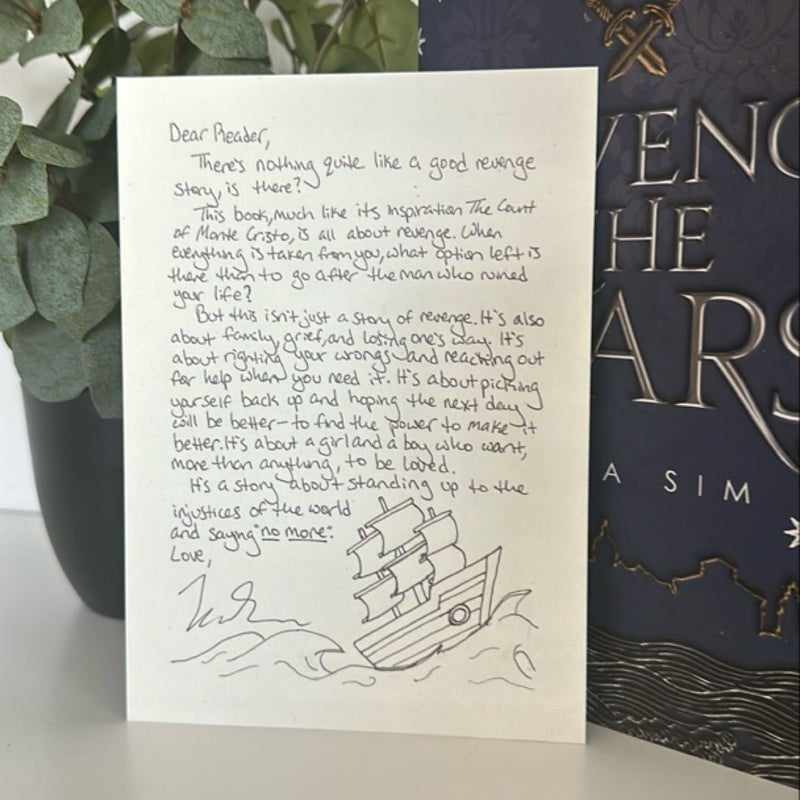 Dear Reader,
There's nothing quite like a good revenge
story, is there?
This book, much like its inspiration The Count
of Monte Cristo, is all about revenge. When
everything is taken from you, what option left is
there than to go after the man who ruined
your life?
But this isn't just a story of revenge. It's also
about family, grief, and losing one's way. It's
about righting your wrongs and reaching out
for help when you need it. It's about picking
yourself back up and hoping the next day
will be better—to find the power to make it
better. It's about a girl and a boy who want,
more than anything, to be loved.
It's a story about standing up to the
injustices of the world
and saying "no more".
Love,
VENG
THE
ARS
A SIM